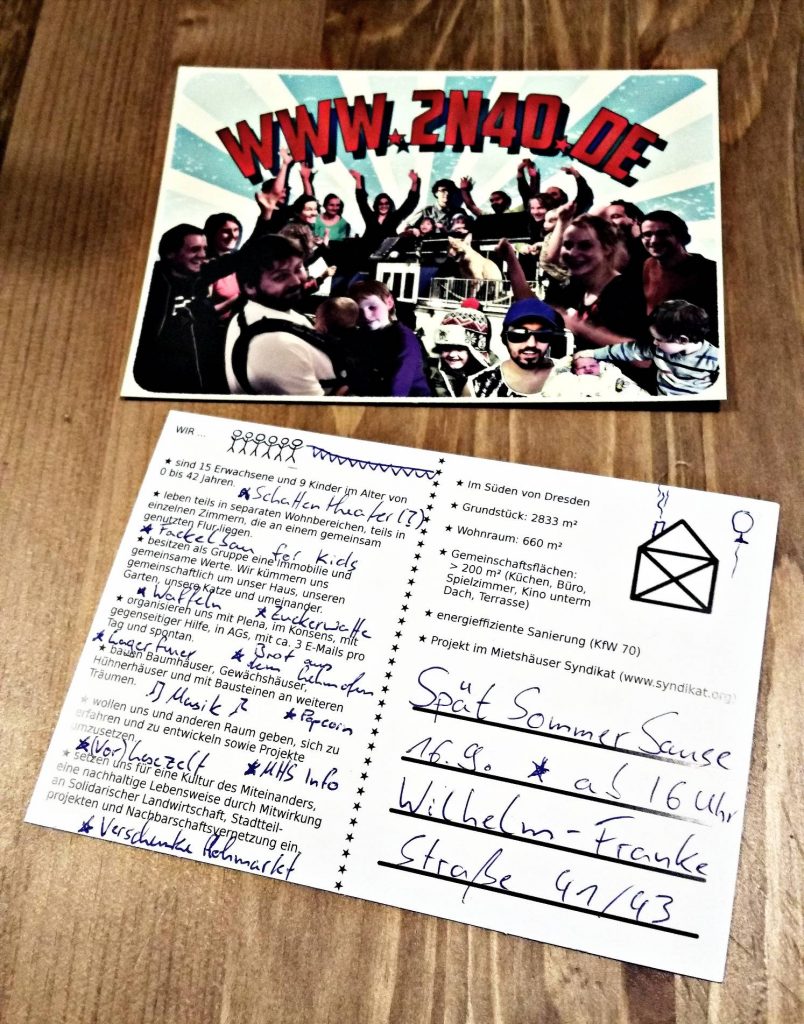 WWW.2N40.DE
WIR ...
★ sind 15 Erwachsene und 9 Kinder im Alter von
0 bis 42 Jahren.
★ Schattentheater (?)
★ leben teils in separaten Wohnbereichen, teils in
einzelnen Zimmern, die an einem gemeinsam
genutzten Flur liegen.
★ Fackelbau für Kids
★ besitzen als Gruppe eine Immobilie und
gemeinsame Werte. Wir kümmern uns
gemeinschaftlich um unser Haus, unseren
Garten, unsere Katze und umeinander.
★ Waffeln ★ Zuckerwatte
★ organisieren uns mit Plena, im Konsens, mit
gegenseitiger Hilfe, in AGs, mit ca. 3 E-Mails pro
Tag und spontan.
★ Lagerfeuer ★ Brot aus
dem Lehmofen
★ bauen Baumhäuser, Gewächshäuser,
Hühnerhäuser und mit Bausteinen an weiteren
Träumen.
♫ Musik ♪ ★ Popcorn
★ wollen uns und anderen Raum geben, sich zu
erfahren und zu entwickeln sowie Projekte
umzusetzen.
★ (Vor)Lesezelt ★ MHS Info
★ setzen uns für eine Kultur des Miteinanders,
eine nachhaltige Lebensweise durch Mitwirkung
an Solidarischer Landwirtschaft, Stadtteil-
projekten und Nachbarschaftsvernetzung ein.
★ Verschenke Flohmarkt
★ Im Süden von Dresden
★ Grundstück: 2833 m²
★ Wohnraum: 660 m²
★ Gemeinschaftsflächen:
> 200 m² (Küchen, Büro,
Spielzimmer, Kino unterm
Dach, Terrasse)
★ energieffiziente Sanierung (KfW 70)
★ Projekt im Mietshäuser Syndikat (www.syndikat.org)
Spät Sommer Sause
16.9. ★ ab 16 Uhr
Wilhelm-Franke
Straße 41/43